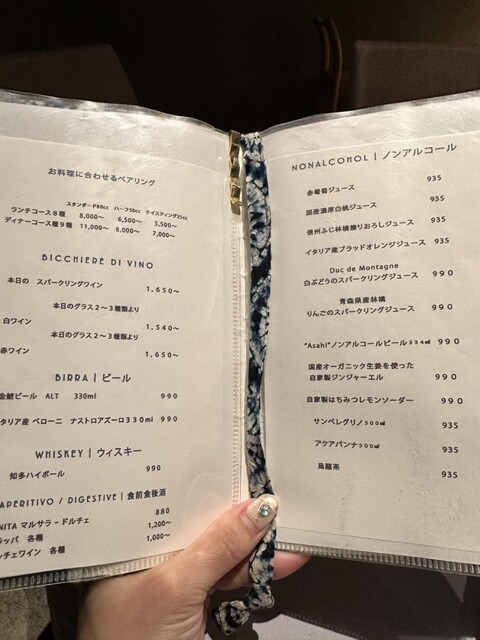 お料理に合わせるペアリング
スタンダード80cc ハーフ50cc テイスティング25cc
ランチコース8種 8,000〜 6,500〜 5,500〜
ディナーコース種9種 11,000〜 8,000〜 7,000〜
BICCHIERE DI VINO
本日の スパークリングワイン 1,650〜
本日のグラス2〜3種類より
白ワイン 1,540〜
本日のグラス2〜3種類より
赤ワイン 1,650〜
BIRRA | ビール
金鯱ビール ALT 330ml 990
タリア産 ペローニ ナストロアズーロ330ml 990
WHISKEY | ウィスキー
知多ハイボール 990
APERITIVO / DIGESTIVE | 食前食後酒
NITA マルサラ-ドルチェ 880
ラッパ 各種 1,200〜
ンチェワイン 各種 1,000〜
NONALCOHOL | ノンアルコール
赤葡萄ジュース 935
国産濃厚白桃ジュース 935
信州ふじ林檎擦りおろしジュース 935
イタリア産ブラッドオレンジジュース 935
Duc de Montagne
白ぶどうのスパークリングジュース 990
青森県産林檎
りんごのスパークリングジュース 990
"Asahi"ノンアルコールビール334ml 990
国産オーガニック生姜を使った
自家製ジンジャーエル 990
自家製はちみつレモンソーダー 990
サンペレグリノ500ml 935
アクアパンナ500ml 935
烏龍茶 935